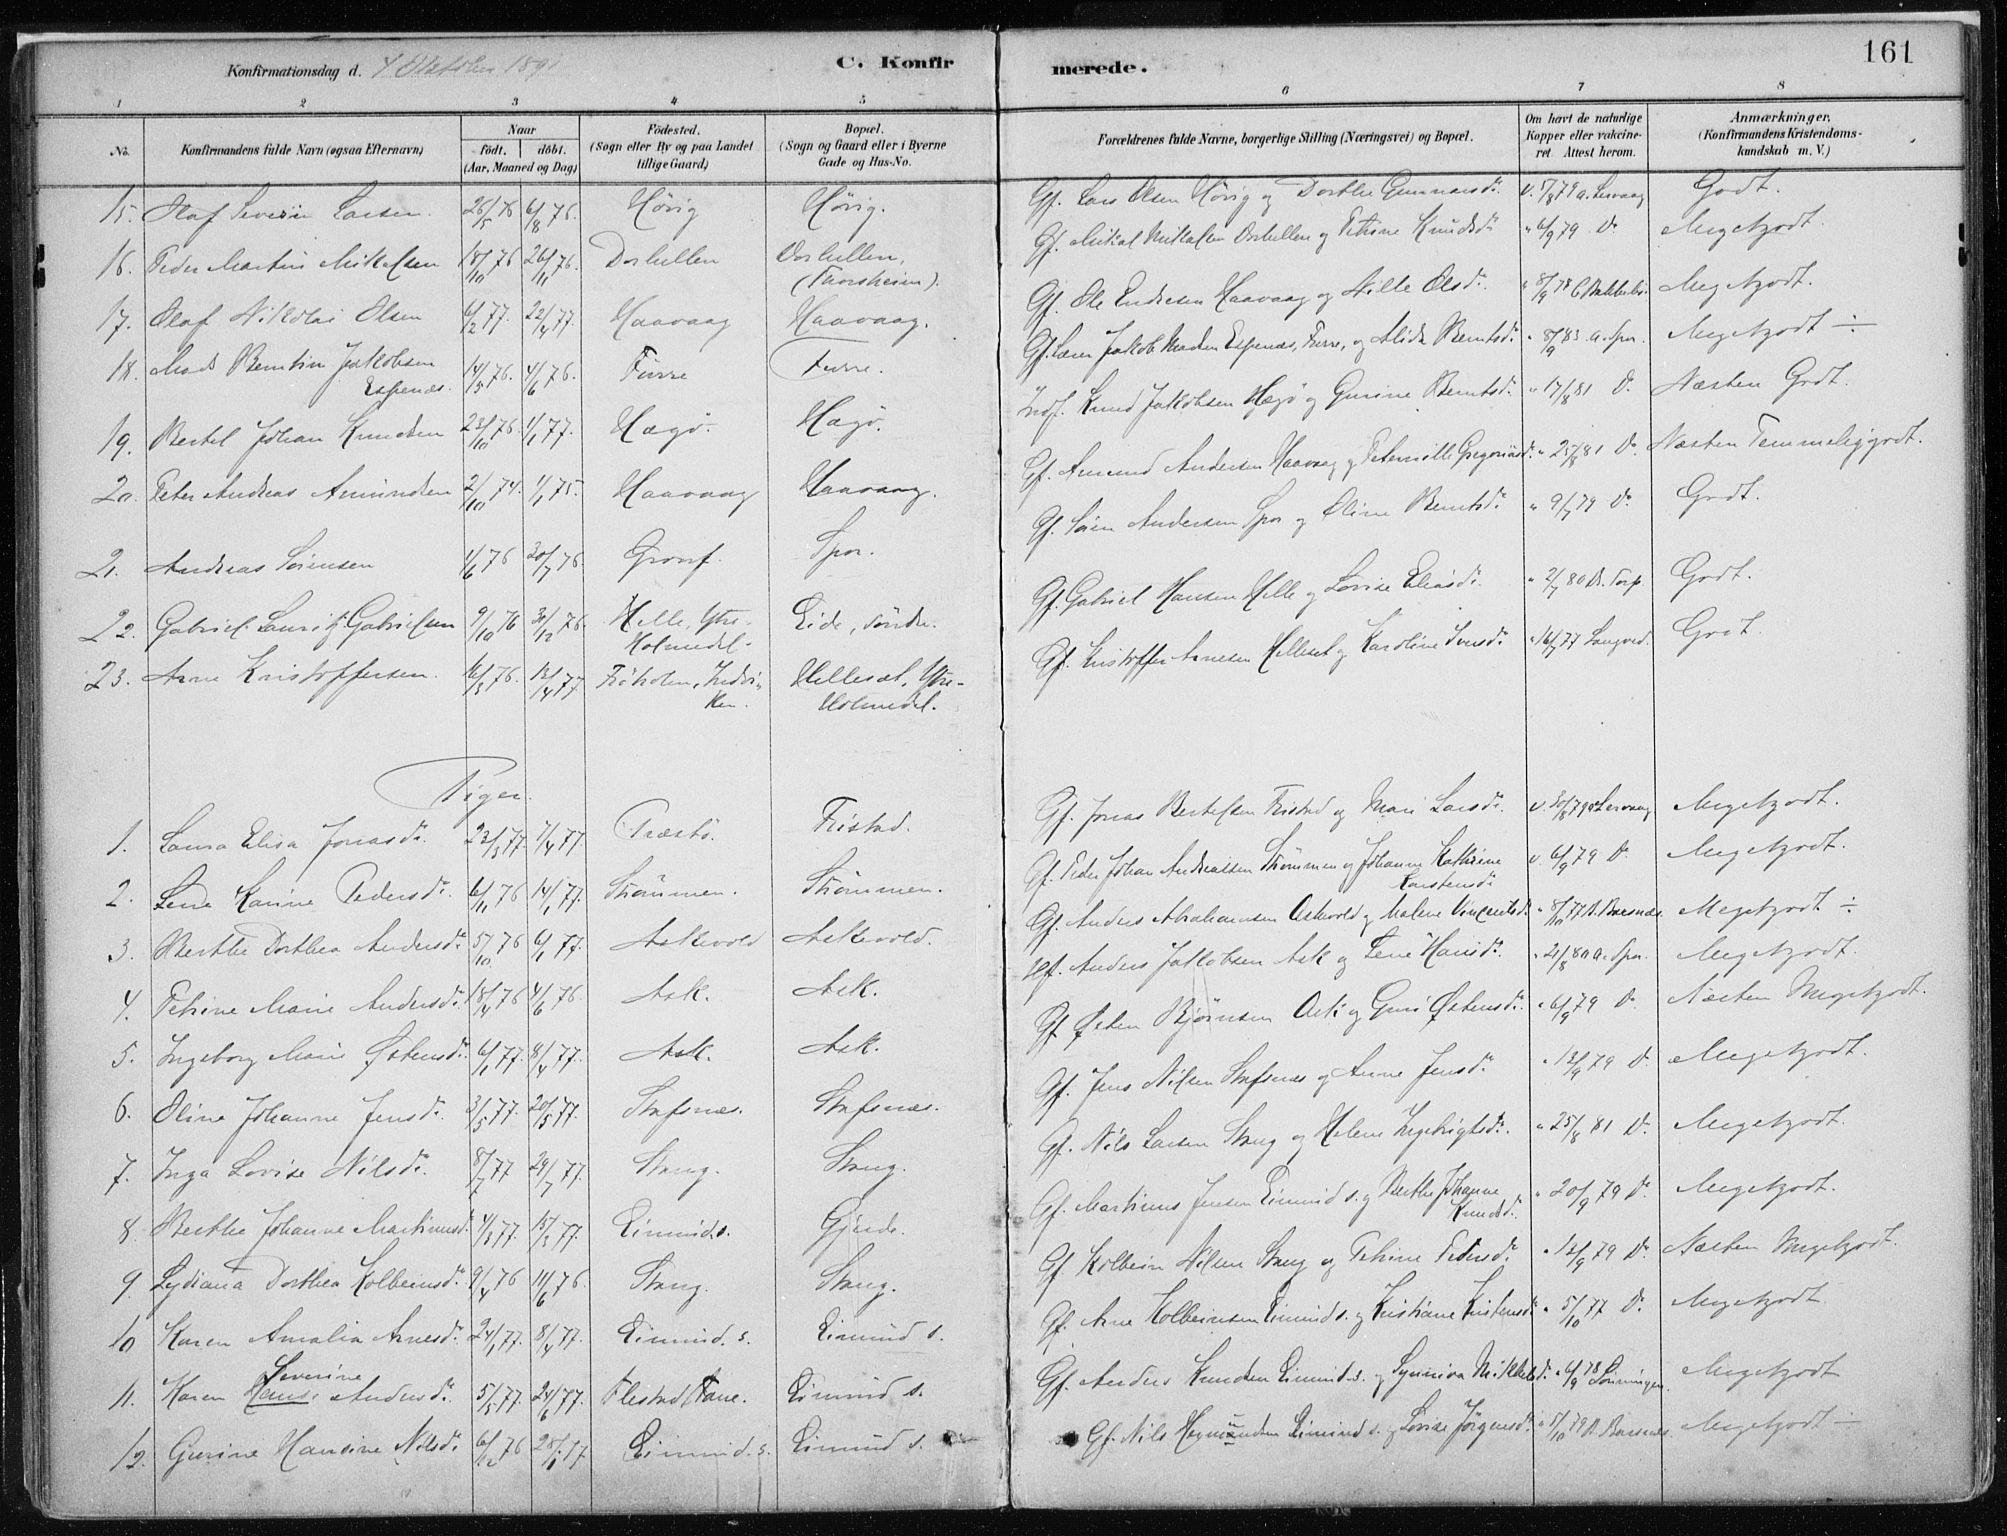 161
Konfirmationsdag d. 4 Oktober 1891
C. Konfirmerede.
1 2 3 4 5 6 7 8
No. Konfirmandens fulde Navn (ogsaa Efternavn) Naar födt. döbt. (Aar, Maaned og Dag) Födested. (Sogn eller By og paa Landet tillige Gaard) Bopæl. (Sogn og Gaard eller i Byerne Gade og Hus-No. Forældrenes fulde Navne, borgerlige Stilling (Næringsvei) og Bopæl. Om havt de naturlige Kopper eller vakcineret. Attest herom. Anmærkninger. (Konfirmandens Kristendomskundskab m. V.)
15. Olaf Severin Larsen. 26/5 76 6/8 76. Hövig Hövig. Gf. Lars Olsen Hövig og Dorthe Gunnarsdr. v. 5/8 79 a. Lervaag Godt.
16. Peder Martin Mikkelsen 18/10 76 26/11 76. Dorhellen Dorhellen, (Thorsheim). Gf. Mikal Mikkelsen Dorhellen og Petrine Knudsdr. " 6/9 79 Do. Megetgodt.
17. Olaf Nikolai Olsen 6/2 77. 22/4 77. Haavaag Haavaag. Gf. Ole Endresen Haavaag og Nille Olsdr. " 8/9 78 Megetgodt.
18. Mads Berntin Jakobsen Espenæs. 14/5 76. 4/6 76. Furre Furre. Gf. Lærer Jakob Madsen Espenæs, Furre, og Alida Berntsdr. " 8/9 83 a. Spor. Megetgodt ÷
19. Bertel Johan Knudsen 23/10 76. 1/1 77. Hægö. Hægö. Indf. Knud Jakobsen Hægö og Gurine Berntsdr. " 17/8 81 Do. Næsten Godt.
20. Peter Andreas Amundsen 2/10 74. 1/1 75. Haavaag Haavaag. Gf. Amund Andersen Haavaag og Peternille Gregoriusdr. " 25/8 81 Do. Næsten Temmeliggodt.
21. Andreas Sörensen 4/6 76 30/7 76. Grov Spor. Gf. Sören Andersen Spor og Oline Berntsdr. " 9/7 79 Do. Godt.
22. Gabriel Lauritz Gabrielsen 9/10 76 31/12 76. Helle, Ytre-Holmedal. Eide, söndre. Gf. Gabriel Hansen Helle og Lovise Eliasdr. " 2/7 80 Godt.
23. Arne Kristoffersen. 16/3 76. 13/4 77 Fröholm, Indviken. Hellesæt, Ytre-Holmedal. Gf. Kristoffer Arnesen Hellesæt og Karoline Ivarsdr. " 16/7 77 Godt.
Piger.
1. Laura Elisa Jonasdr. 23/3 77. 7/4 77 Træstö. Fristad. Gf. Jonas Bertelsen Fristad og Mari Larsdr. v. 30/8 79 a. Lervaag Megetgodt.
2. Lene Karine Pedersdr. 6/11 76 14/1 77. Strömmen. Strömmen. Gf. Peder Johan Andreassen Strömmen og Johanne Kathrine Karstensdr. v. 6/9 79 Do. Megetgodt.
3. Berthe Dorthea Andersdr. 5/10 76 6/1 77. Askevold Askevold. Gf. Anders Abrahamsen Askevold og Malene Vincentsdr. " 8/10 77 B. Barsnæs. Megetgodt ÷
4. Petrine Marie Andersdr. 18/4 76 4/6 76. Ask. Ask. Anders Jakobsen Ask og Lene Hansdr. " 21/8 80 a. Spor. Megetgodt.
5. Ingeborg Marie Östensdr. 6/1 77. 8/4 77. Ask. Ask. Gf. Östen Björnsen Ask og Guri Östensdr. " 6/9 79 Do Næsten Megetgodt.
6. Oline Johanne Jensdr. 3/5 77. 20/5 77. Stafsnæs. Stafsnæs. Gf. Jens Nilsen Stafsnæs og Anne Jensdr. " 13/9 79 Do. Megetgodt.
7. Inga Lovise Nilsdr. 8/7 77 29/7 77. Staug. Staug. Gf. Nils Larsen Staug og Helene Ingebrigtsdr. " 25/8 81 Do. Megetgodt.
8. Berthe Johanne Martinusdr. 4/3 77. 15/3 77 Eimind s. Gjerde. Gf. Martinus Jensen Eimind s. og Berthe Johanne Knudsdr. " 20/9 79 Do. Megetgodt.
9. Lydiana Dorthea Kolbeinsdr. 9/4 76 11/6 76. Staug. Staug. Gf. Kolbein Nilsen Staug og Petrine Pedersdr. " 13/9 79 Do. Næsten Megetgodt.
10 Karen Amalia Arnesdr. 24/1 77. 8/4 77. Eimind. s. Eimind s. Gf. Arne Kolbeinsen Eimind s. og Kristiane Kristensdr. " 5/10 77 Do. Megetgodt
11. Karen Severine Hans. Andersdr. 5/5 77. 24/6 77. Flestad Fane. Eimind s. Gf. Anders Knudsen Eimind. s. og Synniva Mikkelsdr. " 6/9 78 Megetgodt
12. Gurine Hansine Nilsdr. 6/12 76 28/1 77. Eimind. s. Eimind s. Gf. Nils Hegmundsen Eimind s. og Lovise Jörgensdr. " 5/10 79 B. Barsnæs. Megetgodt ÷